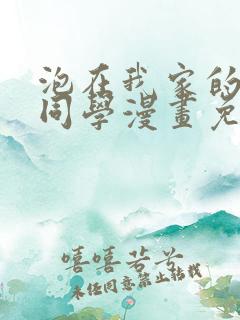 泡在我家的
同學漫畫免
嘻嘻若芊
未任同意禁止转载